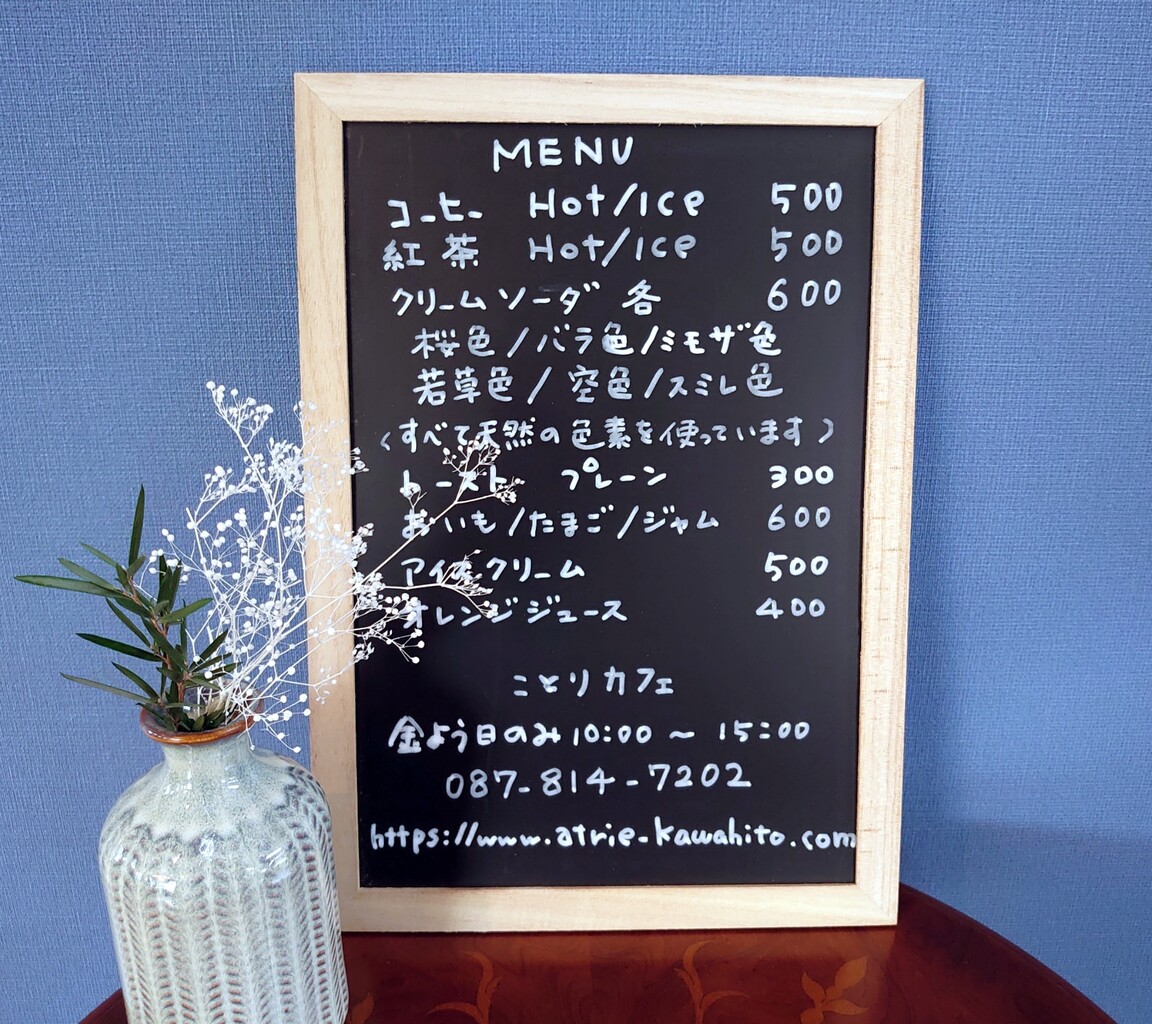 MENU
コーヒー Hot/Ice 500
紅茶 Hot/Ice 500
クリームソーダ 各 600
桜色/バラ色/ミモザ色
若草色/空色/スミレ色
〈すべて天然の色素を使っています〉
トースト プレーン 300
おいも/たまご/ジャム 600
アイスクリーム 500
オレンジジュース 400
ことりカフェ
金よう日のみ 10:00 ～ 15:00
087-814-7202
https://www.atrie-kawahito.com